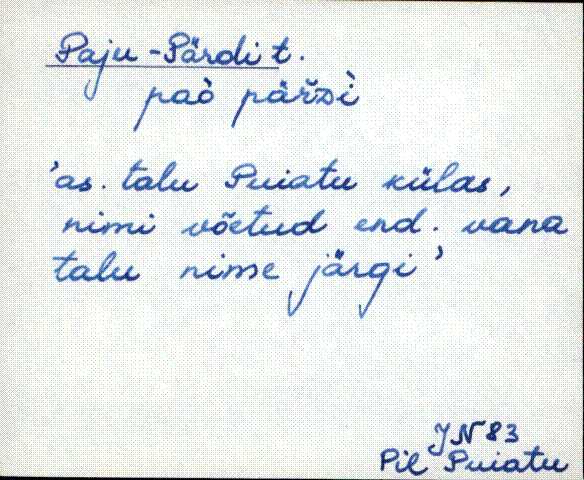 Paju-Pärdi t.
paò pärzì
'as. talu Puiatu külas,
nimi võetud end. vana
talu nime järgi'
JN 83
Pil Puiatu